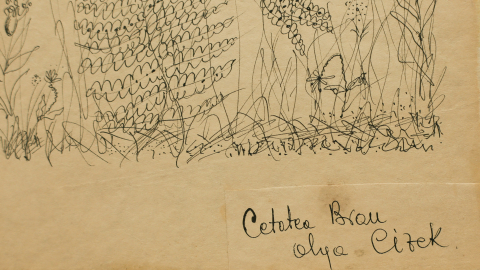 Cetatea Bran
Olga Cizek.